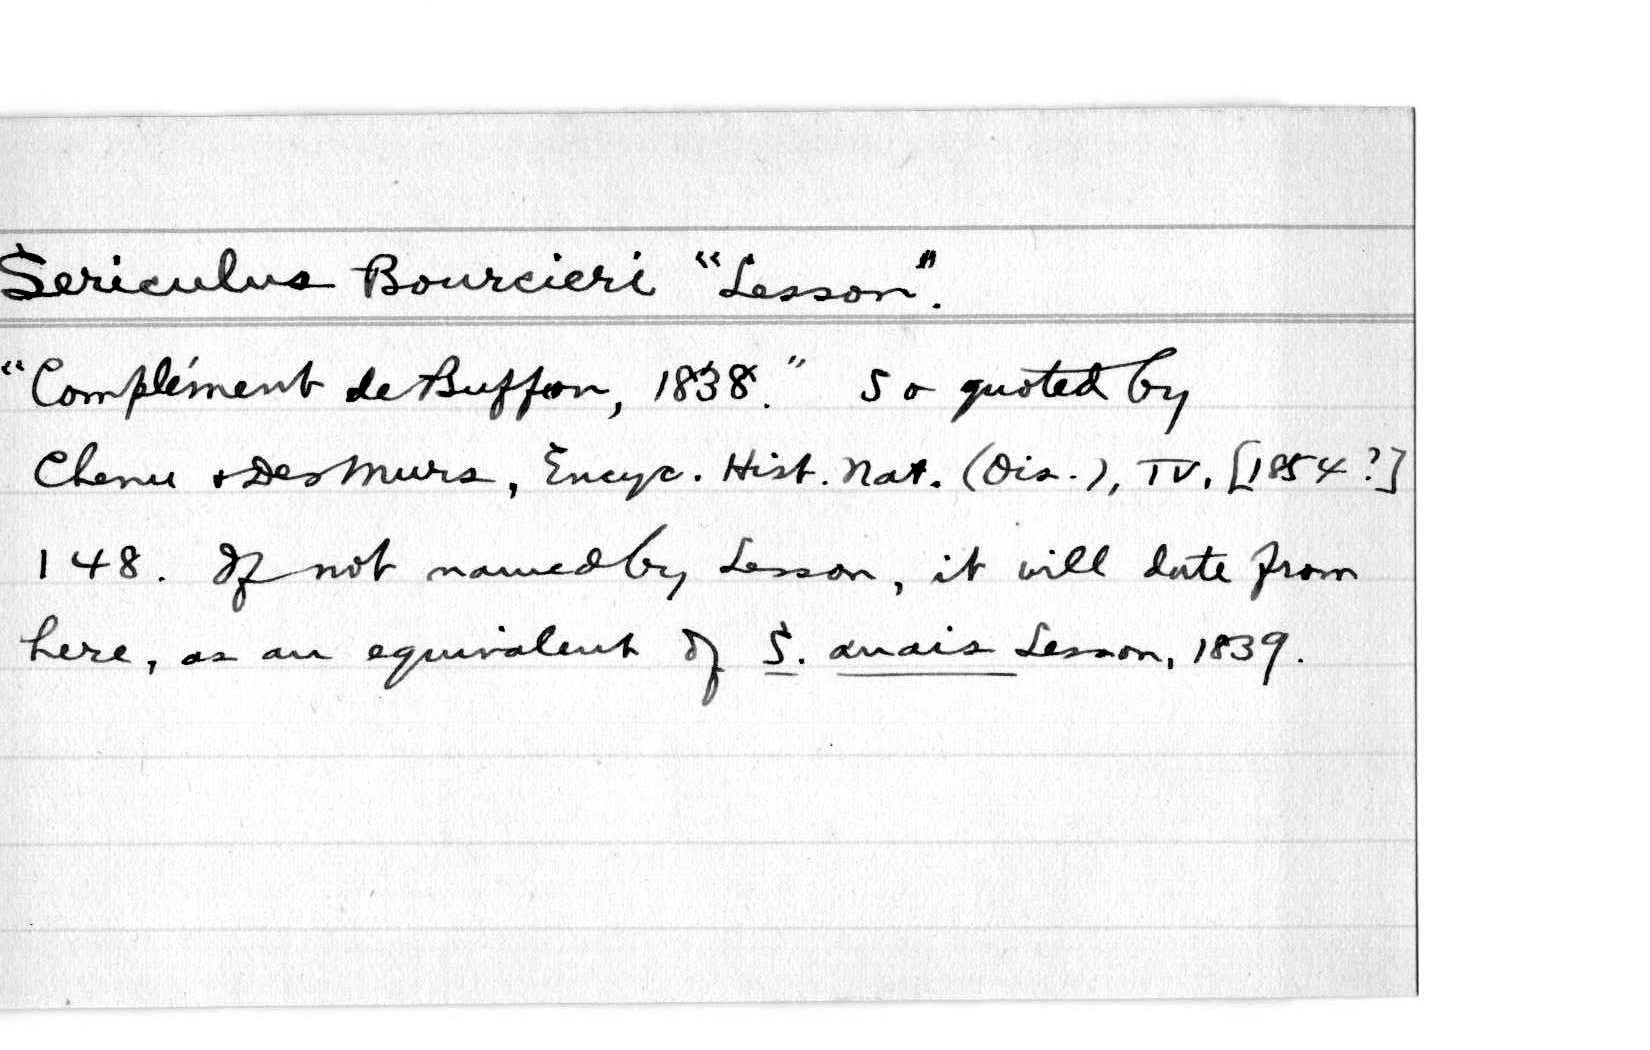 Sericulus Bourcieri "Lesson".
"Complément de Buffon, 1838." So quoted by
Chenu & Des Murs, Encyc. Hist. Nat. (Ois.), IV, [1854?]
148. If not named by Lesson, it will date from
here, as an equivalent of S. anais Lesson, 1839.